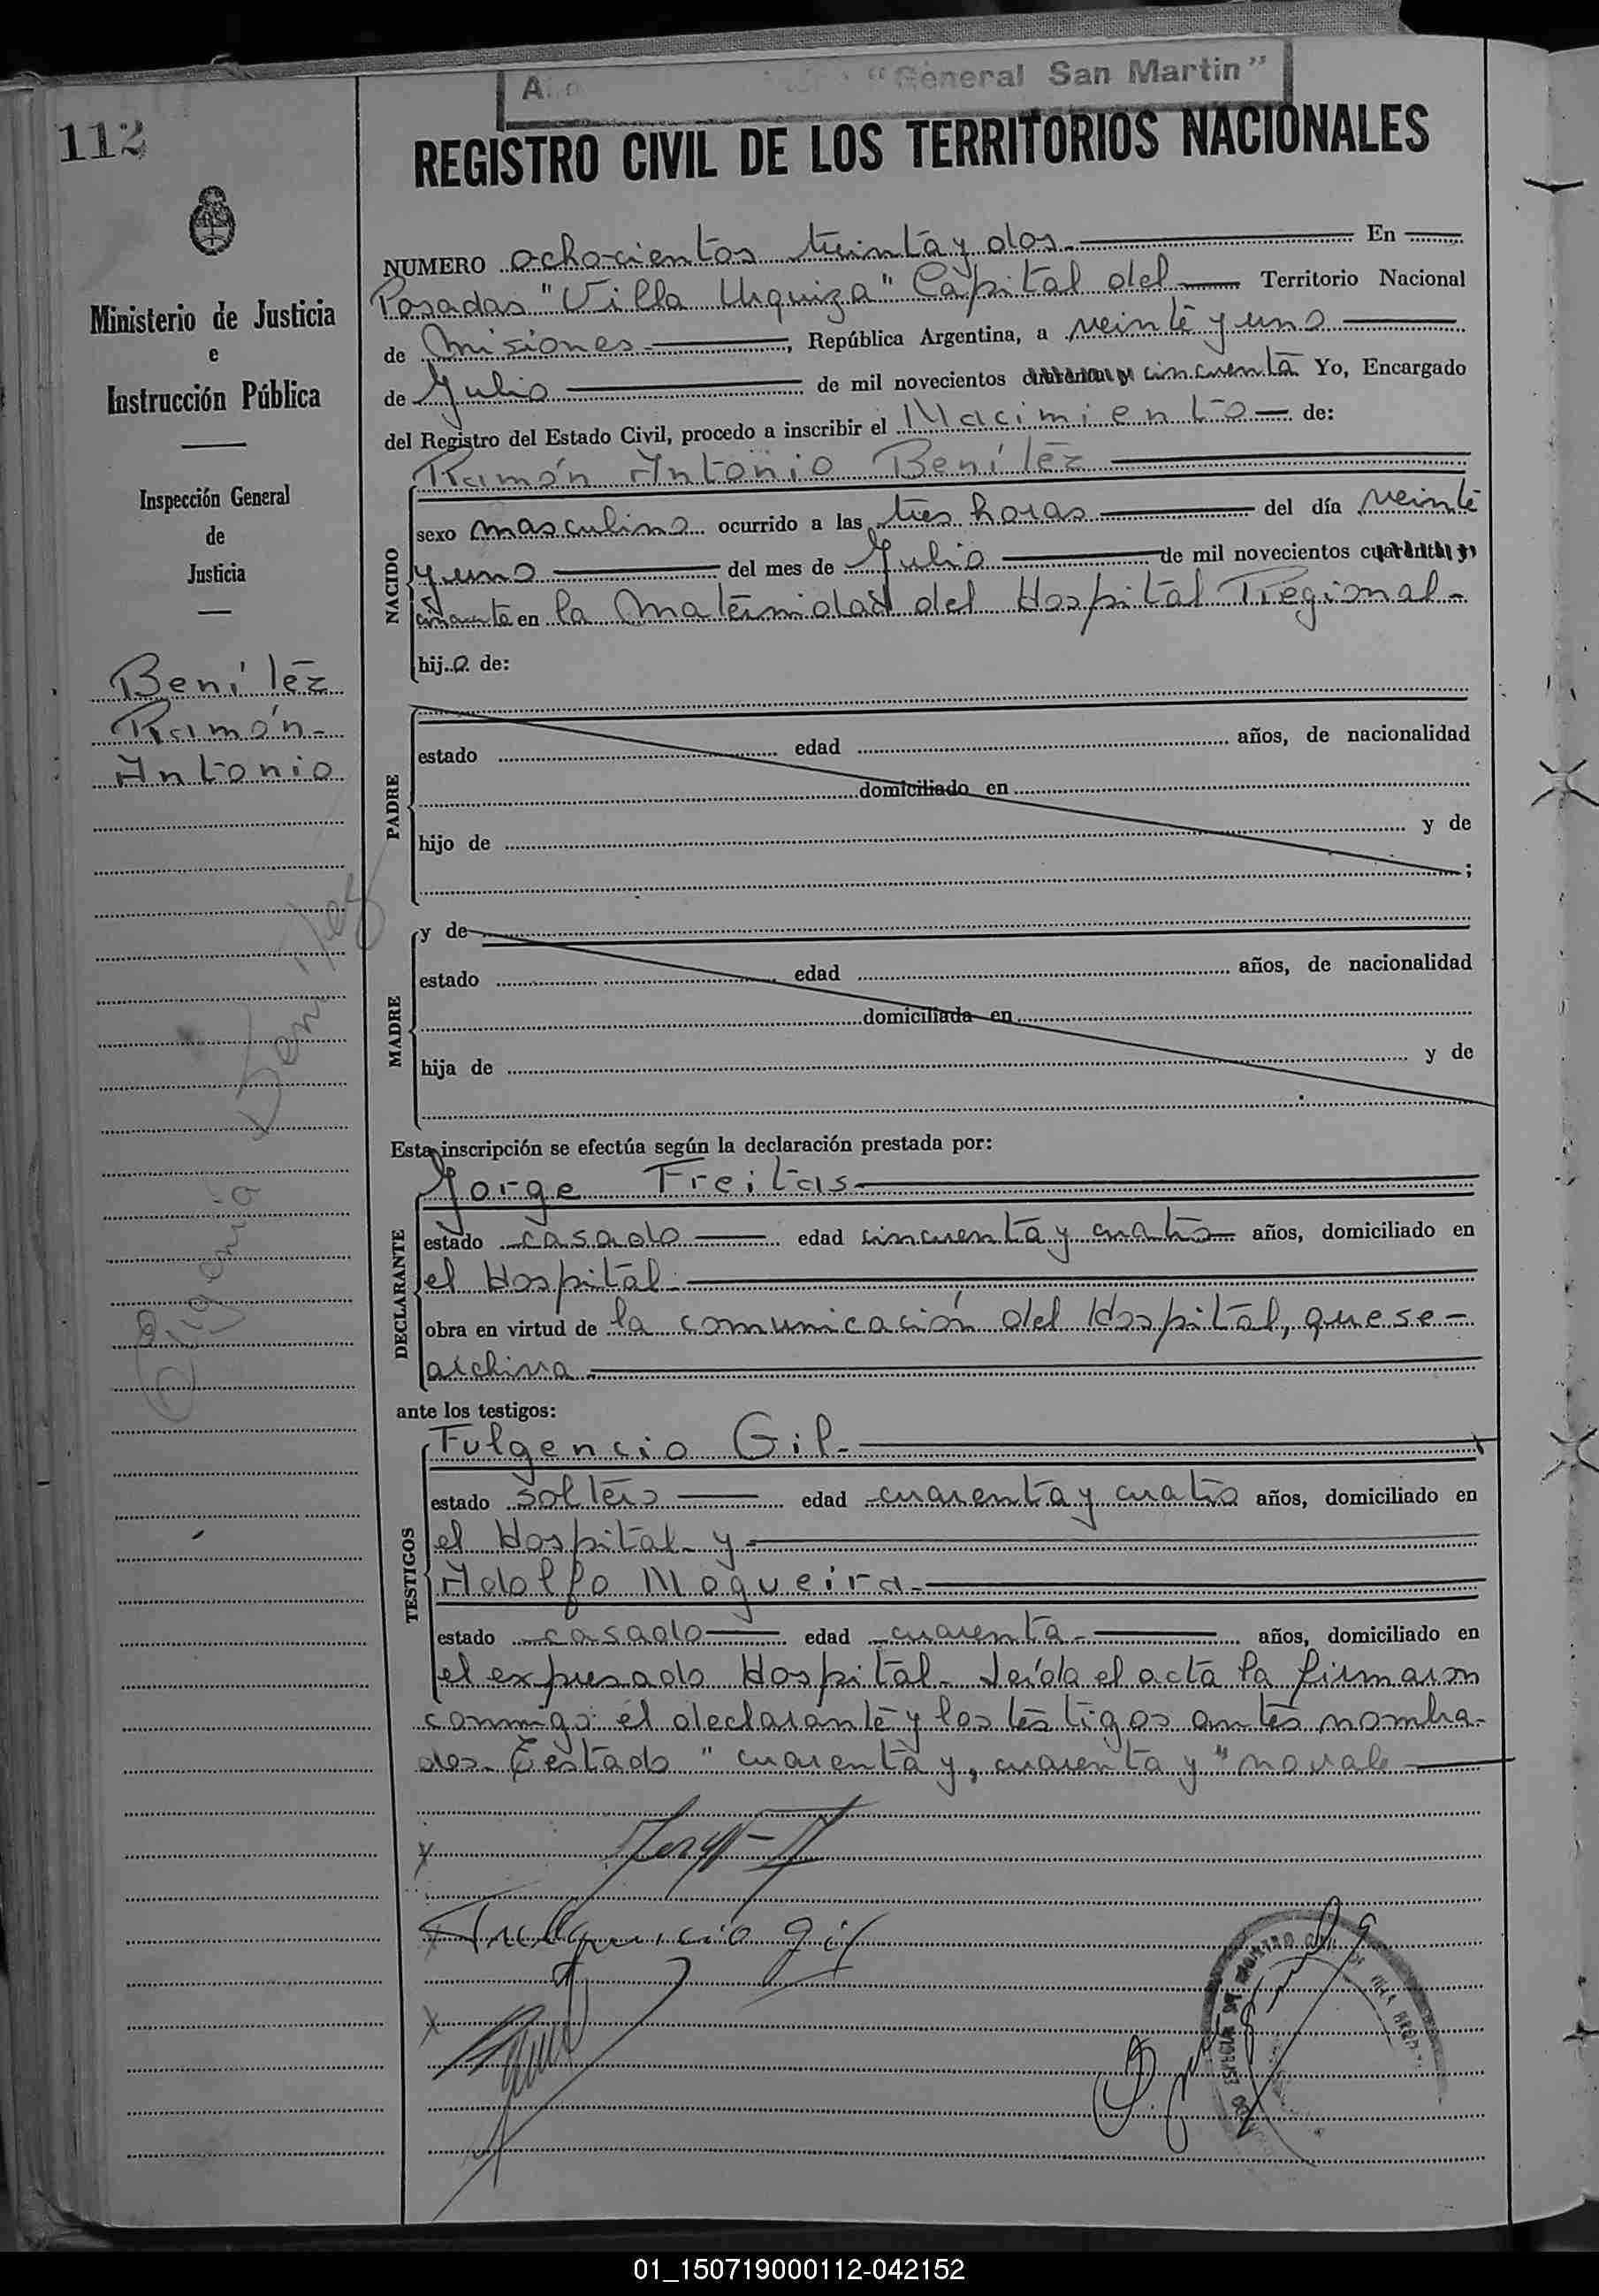 "General San Martin"
112
REGISTRO CIVIL DE LOS TERRITORIOS NACIONALES
Ministerio de Justicia
e
Instrucción Pública
Inspección General
de
Justicia
Benítez
Ramón-
Antonio
NUMERO ochocientos treinta y dos.- En
Posadas "Villa Urquiza" Capital del Territorio Nacional
de Misiones, República Argentina, a veinte y uno
de Julio de mil novecientos cuarenta y cincuenta Yo, Encargado
del Registro del Estado Civil, procedo a inscribir el Nacimiento de:
Ramón Antonio Benítez
NACIDO
sexo masculino ocurrido a las tres horas del día veinte
y uno del mes de Julio de mil novecientos cuarenta y
cincuenta en la Maternidad del Hospital Regional-
hijo de:
PADRE
estado edad años, de nacionalidad
domiciliado en
hijo de y de
;
MADRE
y de
estado edad años, de nacionalidad
domiciliada en
hija de y de
Esta inscripción se efectúa según la declaración prestada por:
DECLARANTE
Jorge Freitas
estado casado edad cincuenta y cuatro años, domiciliado en
el Hospital.
obra en virtud de la comunicación del Hospital, que se-
archiva.
ante los testigos:
TESTIGOS
Fulgencio Gil.
estado soltero edad cuarenta y cuatro años, domiciliado en
el Hospital- y
Adolfo Nogueira.
estado casado edad cuarenta- años, domiciliado en
el expresado Hospital- Leída el acta la firmaron
conmigo el declarante y los testigos antes nombra-
dos- Testado "cuarenta y, cuarenta y" no vale
Fulgencio Gil
01_150719000112-042152